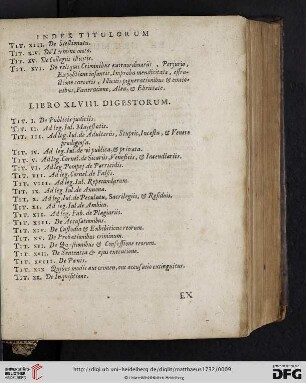 INDEX TITULORUM
TIT. XIII. De Stellionatu.
TIT. XIV. De Termino moto.
TIT. XV. De Collegiis illicitis.
TIT. XVI. De reliquis Criminibus extraordinariis, Perjurio,
Expositione infantis, Improba mendicitate, effra-
ctione carceris, Illicitis pignorationibus &
nibus, Fæneratione, Alea, & Ebrietate.
LIBRO XLVIII DIGESTORUM.
TIT. I. De Publicis judiciis.
TIT. II. Ad leg. Jul. Majestatis.
TIT. III. Ad leg. Jul. de Adulteriis, Stupris, Incestu, & Venere
prodigiosa.
TIT. IV. Ad leg. Jul. de vi publica & privata.
TIT. V. Ad leg. Cornel. de Sicariis, Veneficis, & Incendiariis.
TIT. VI. Ad leg. Pompej. de Parricidiis.
TIT. VII. Ad leg. Cornel. de Falsis.
TIT. VIII. Ad leg. Jul. Repetundarum.
TIT. IX. Ad leg. Jul. de Annona.
TIT. X. Ad leg. Jul. de Peculatu, Sacrilegiis, & Residuis.
TIT. XI. Ad leg. Jul. de Ambitu.
TIT. XII. Ad leg. Fab. de Plagiariis.
TIT. XIII. De Accusationibus.
TIT. XIV. De Custodia & Exhibitione reorum.
TIT. XV. De Probationibus criminum.
TIT. XVI. De Quæstionibus & Confessione reorum.
TIT. XVII. De Sententia & ejus executione.
TIT. XVIII. De Pœnis.
TIT. XIX. Quibus modis aut crimen, aut accusatio extinguitur.
TIT. XX. De Inquisitione.
EX
UNIVERSITÄTS-
BIBLIOTHEK
HEIDELBERG
http://digi.ub.uni-heidelberg.de/diglit/matthaeus1732/0009
© Universitätsbibliothek Heidelberg
DFG